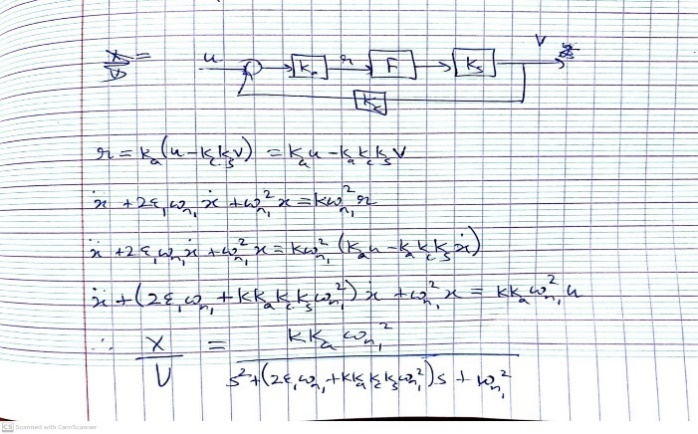 X/V =
u Kₐ r F Kₛ V
K_c
r = kₐ(u − k_c kₛ V) = kₐu − kₐ k_c kₛ V
ẍ + 2ε₁ω_n₁ ẋ + ω_n₁² x = kω_n₁² r
ẍ + 2ε₁ω_n₁ ẋ + ω_n₁² x = kω_n₁² (kₐu − kₐ k_c kₛ ẋ)
ẍ + (2ε₁ω_n₁ + kkₐ k_c kₛ ω_n₁²) ẋ + ω_n₁² x = kkₐ ω_n₁² u
∴ X/U = kkₐ ω_n₁² / s² + (2ε₁ω_n₁ + kkₐ k_c kₛ ω_n₁²)s + ω_n₁²
CS Scanned with CamScanner